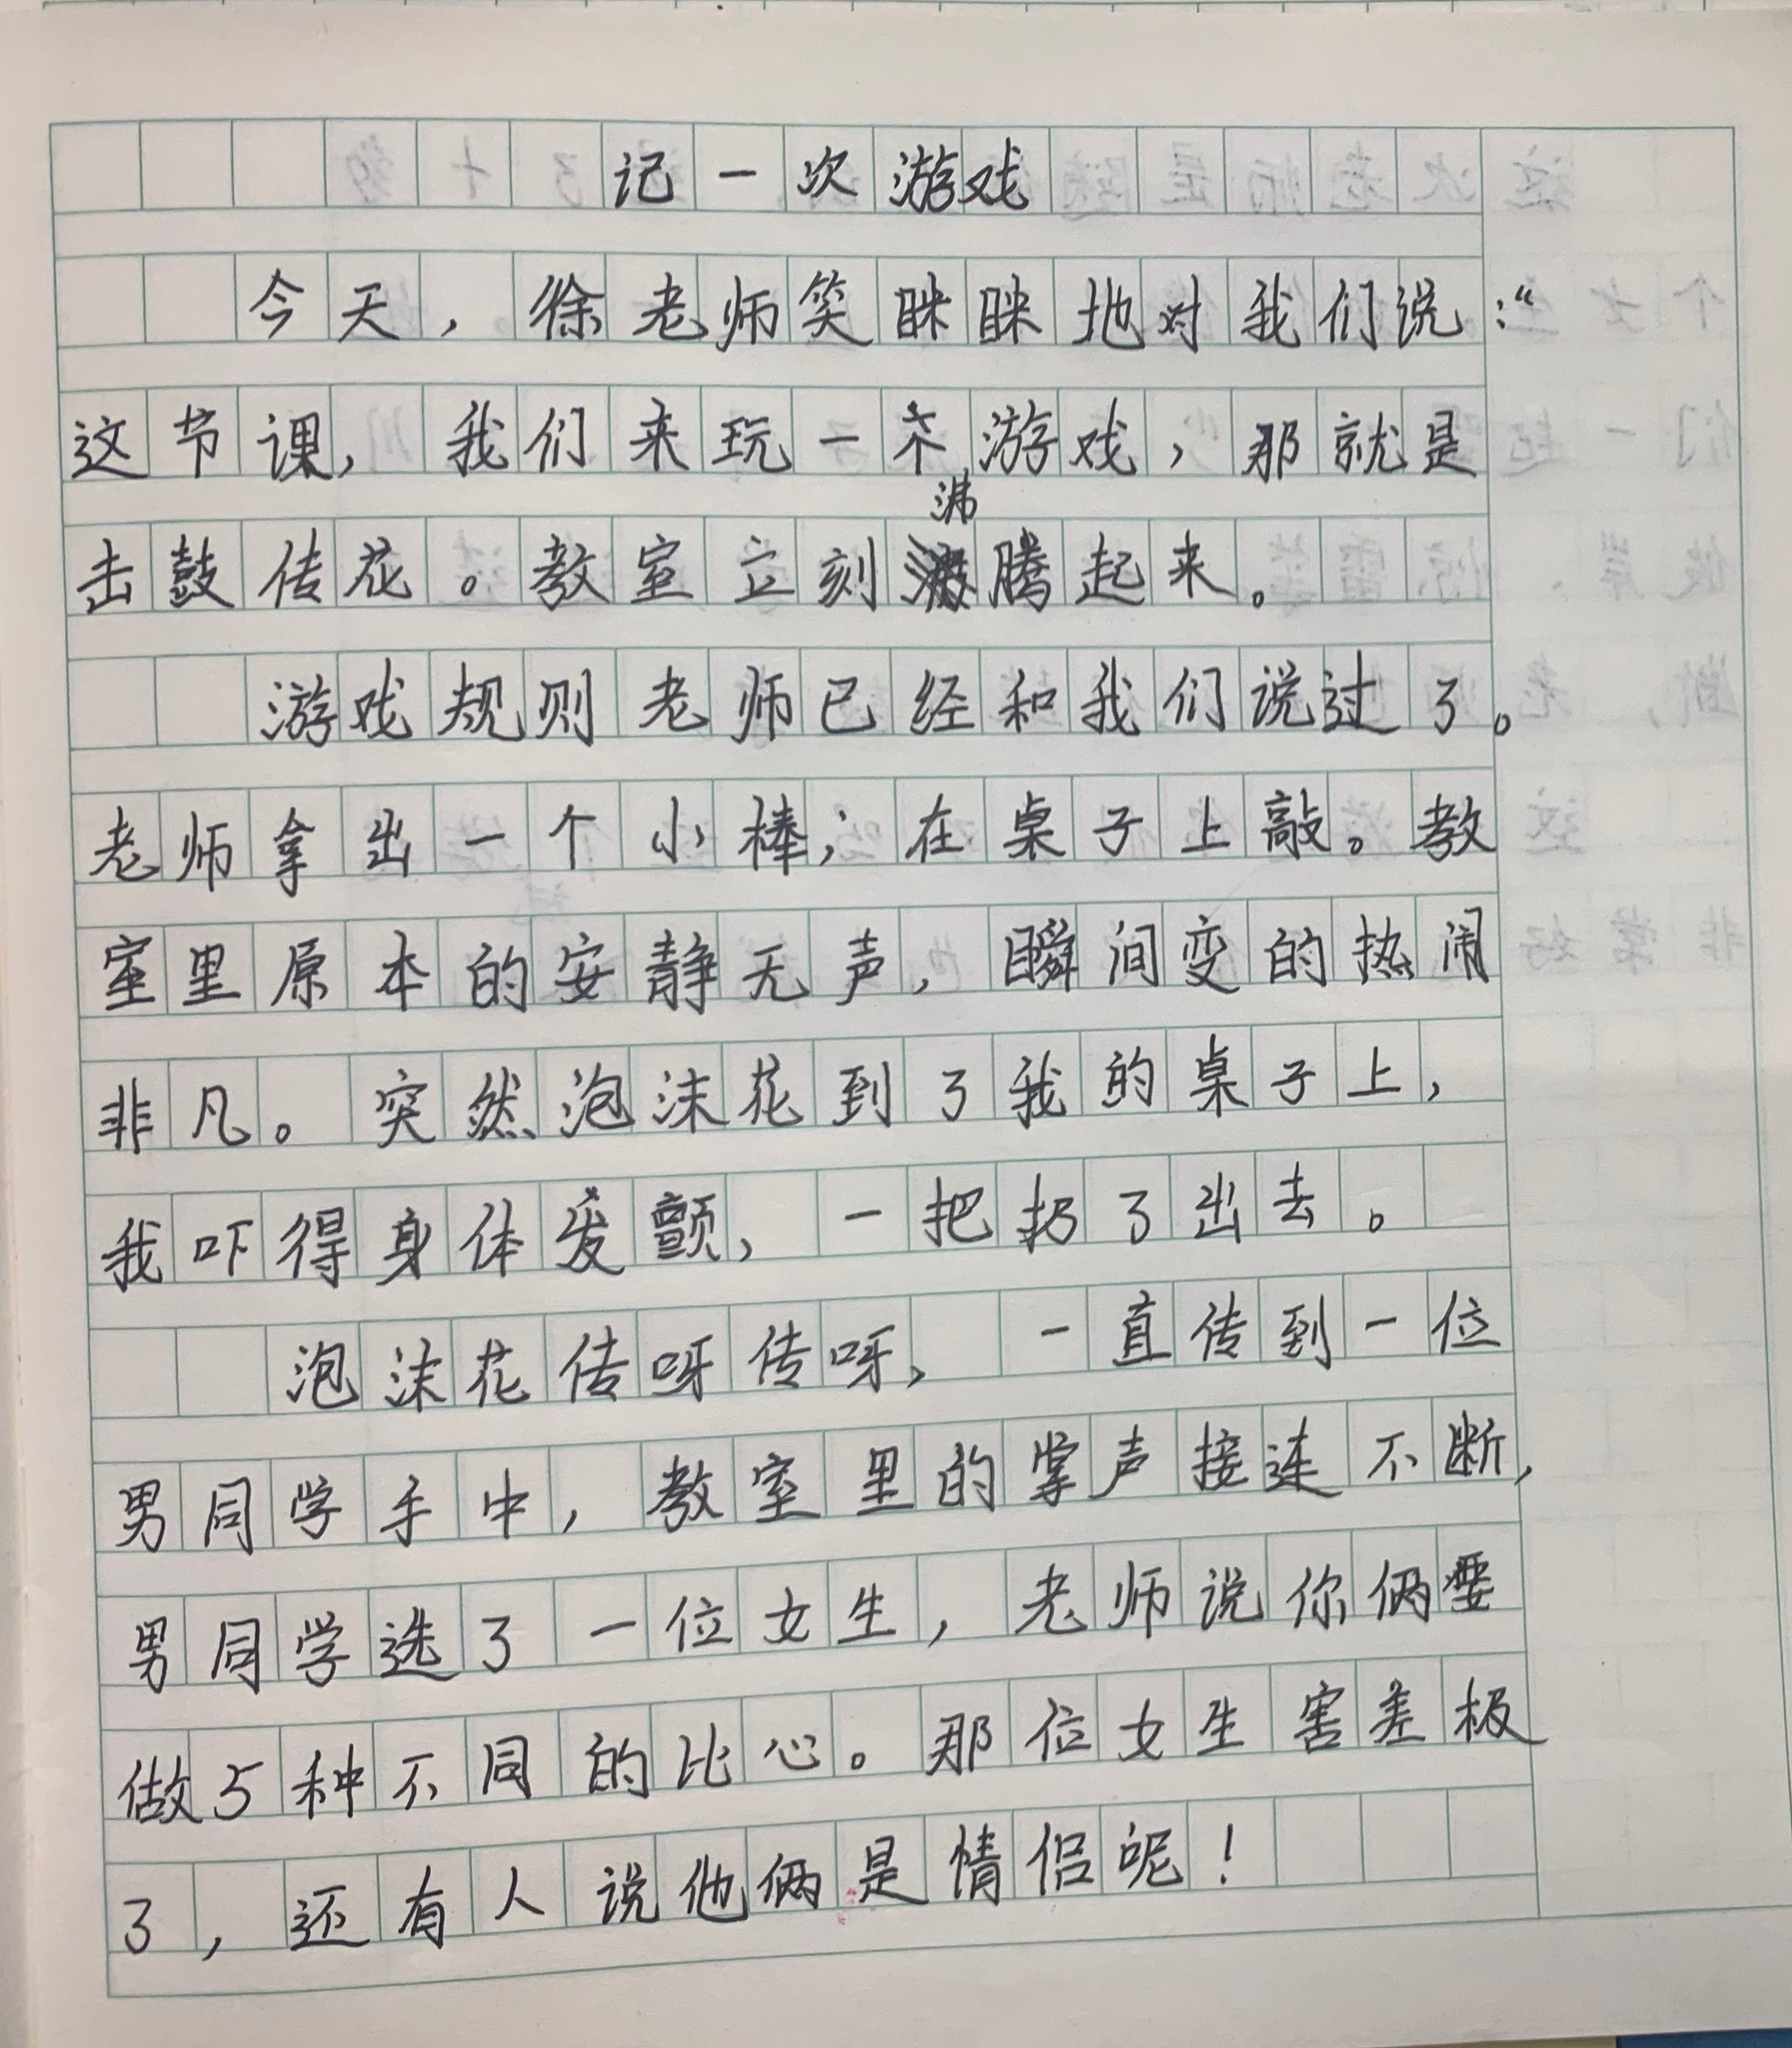 记一次游戏
今天，徐老师笑眯眯地对我们说：“
这节课，我们来玩一个游戏，那就是
击鼓传花。教室立刻沸腾起来。
游戏规则老师已经和我们说过了。
老师拿出一个小棒；在桌子上敲。教
室里原本的安静无声，瞬间变的热闹
非凡。突然泡沫花到了我的桌子上，
我吓得身体发颤，一把扔了出去。
泡沫花传呀传呀，一直传到一位
男同学手中，教室里的掌声接连不断，
男同学选了一位女生，老师说你俩要
做5种不同的比心。那位女生害差极
了，还有人说他俩是情侣呢！